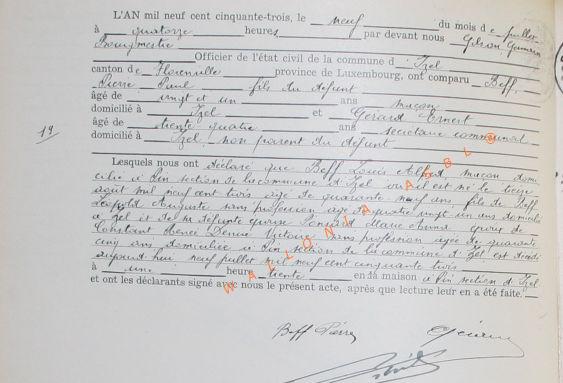 L'AN mil neuf cent cinquante-trois, le neuf du mois de juillet
à quatorze heures par devant nous Gilson,
Bourgmestre
Officier de l'état civil de la commune d' Izel
canton de Florenville province de Luxembourg, ont comparu Beff,
Pierre Paul fils du défunt
âgé de vingt et un ans maçon
domicilié à Izel et Gérard Ernest
âgé de trente quatre ans secrétaire communal
19 domicilié à Izel, non parent du défunt
Lesquels nous ont déclaré que Beff Louis Alfred maçon domi
cilié à Pin section de la commune d'Izel où il est né le treize
août mil neuf cent trois âgé de quarante neuf ans, fils de Beff
Léopold Auguste sans profession âgé de quatre vingt un ans domicilié
à Izel et de sa défunte épouse Ponsard Marie époux de
Constant Renée Denise Victoire sans profession âgée de quarante
cinq ans domiciliée à Pin section de la commune d'Izel est décédé
aujourd'hui neuf juillet mil neuf cent cinquante trois
à une heure trente en sa maison à Pin section d'Izel
et ont les déclarants signé avec nous le présent acte, après que lecture leur en a été faite.
WALLONIA
Beff Pierre